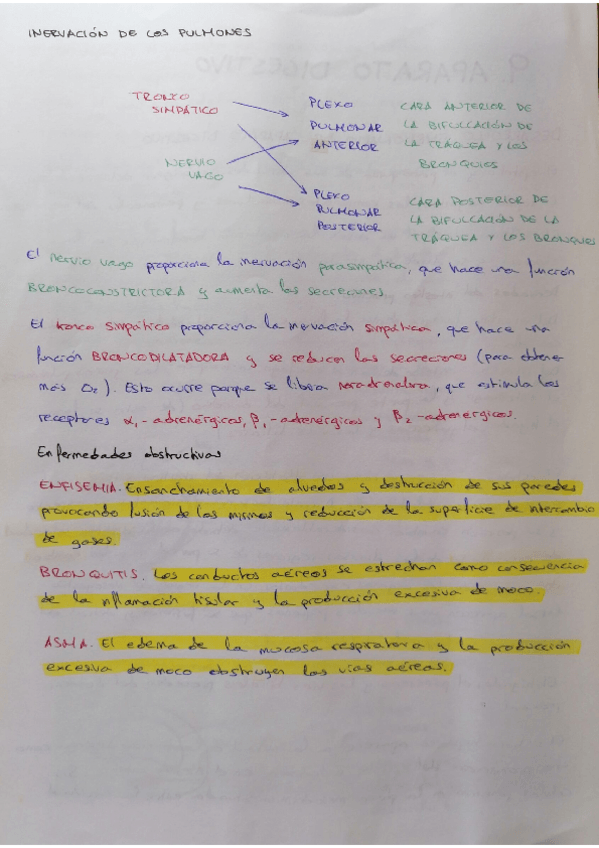 INERVACIÓN DE LOS PULMONES
TRONCO
SIMPÁTICO
NERVIO
VAGO
PLEXO
PULMONAR
ANTERIOR
CARA ANTERIOR DE
LA BIFULCACIÓN DE
LA TRÁQUEA Y LOS
BRONQUIOS
PLEXO
PULMONAR
POSTERIOR
CARA POSTERIOR DE
LA BIFULCACIÓN DE LA
TRÁQUEA Y LOS BRONQUIOS
El nervio vago proporciona la inervación parasimpática, que hace una función
BRONCOCONSTRICTORA y aumenta las secreciones.
El tronco simpático proporciona la inervación simpática, que hace una
función BRONCODILATADORA y se reducen las secreciones (para obtener
más O₂). Esto ocurre porque se libera noradrenalina, que estimula los
receptores α₁-adrenérgicos, β₁-adrenérgicos y β₂-adrenérgicos.
Enfermedades obstructivas
ENFISEMA. Ensanchamiento de alveolos y destrucción de sus paredes
provocando fusión de los mismos y reducción de la superficie de intercambio
de gases.
BRONQUITIS. Los conductos aéreos se estrechan como consecuencia
de la inflamación tisular y la producción excesiva de moco.
ASMA. El edema de la mucosa respiratoria y la producción
excesiva de moco obstruyen las vías aéreas.
9. APARATO DIGESTIVO